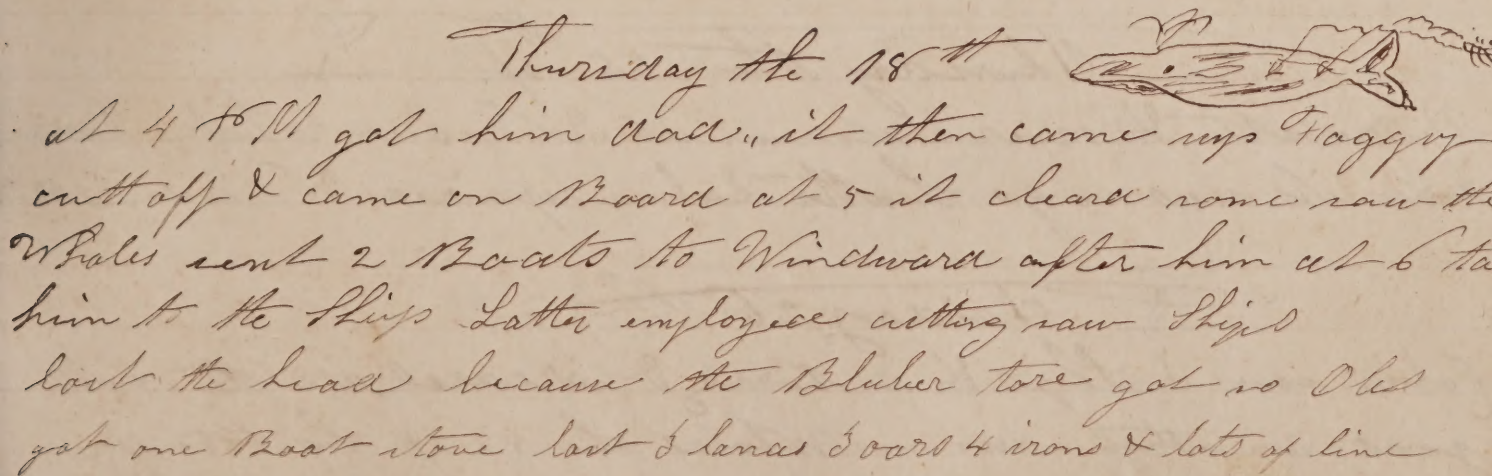 Thursday the 18th
at 4 PM got him dad,, it then came up Foggy
cutt off & came on Board at 5 it cleard some saw the
Whales sent 2 Boats to Windward after him at 6 to
him to the Ship Latter employed cutting saw Ships
lost the head because the Bluber tore got no Obs
got one Boat stove lost 3 lances 3 oars 4 irons & lots of line